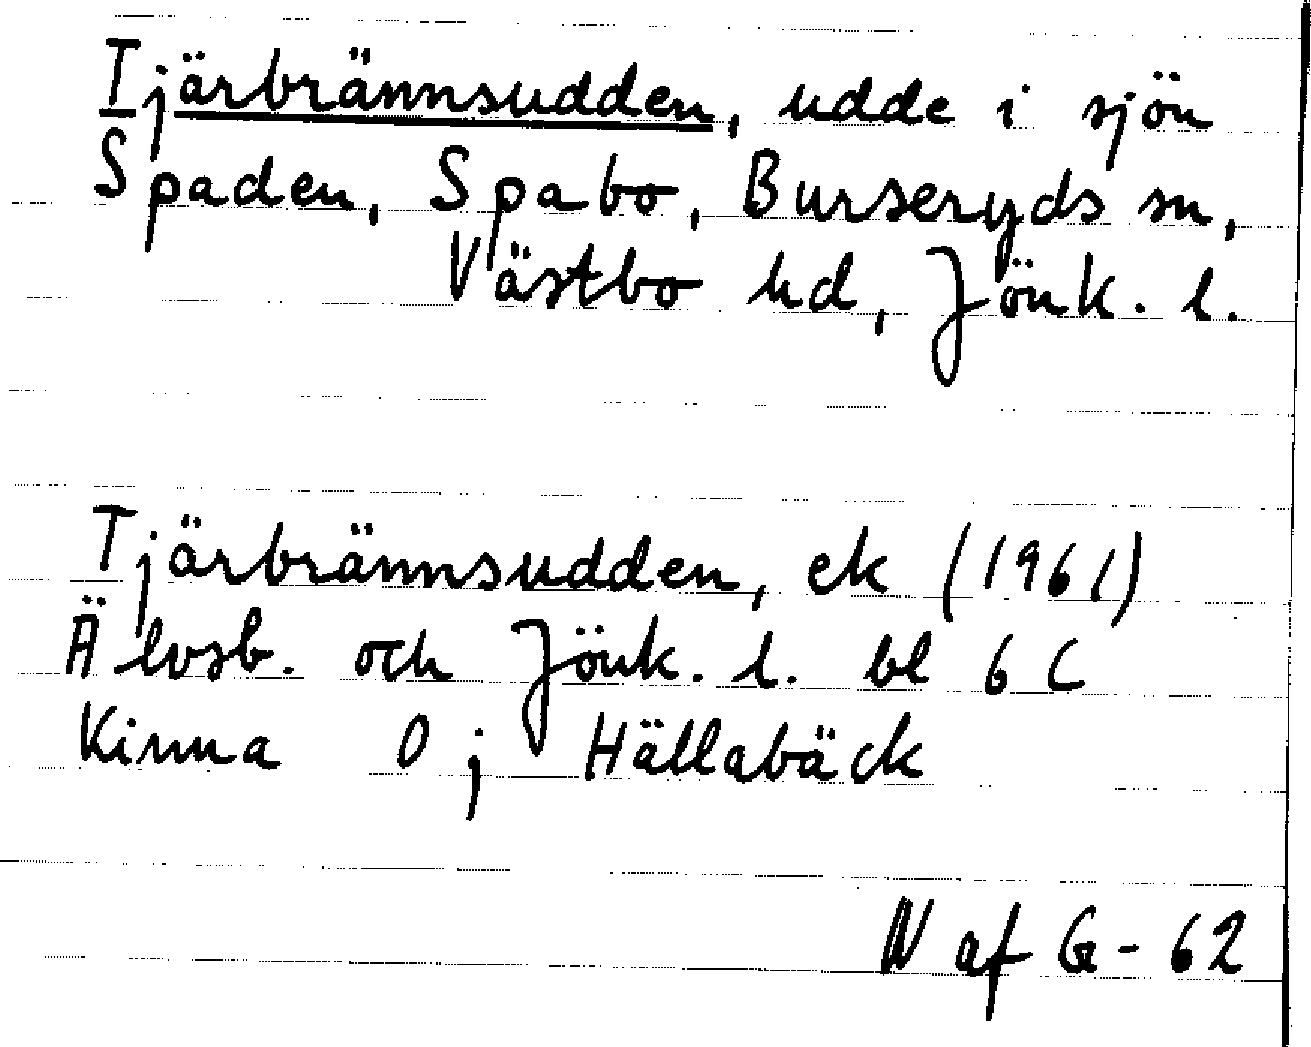 Tjärbrännsudden, udde i sjön
Spaden, Spabo, Burseryds sn,
Västbo hd, Jönk. l.
Tjärbrännsudden, ek (1961)
Älvsb. och Jönk. l. bl 6 C
Kinna O; Hällabäck
N af G-62